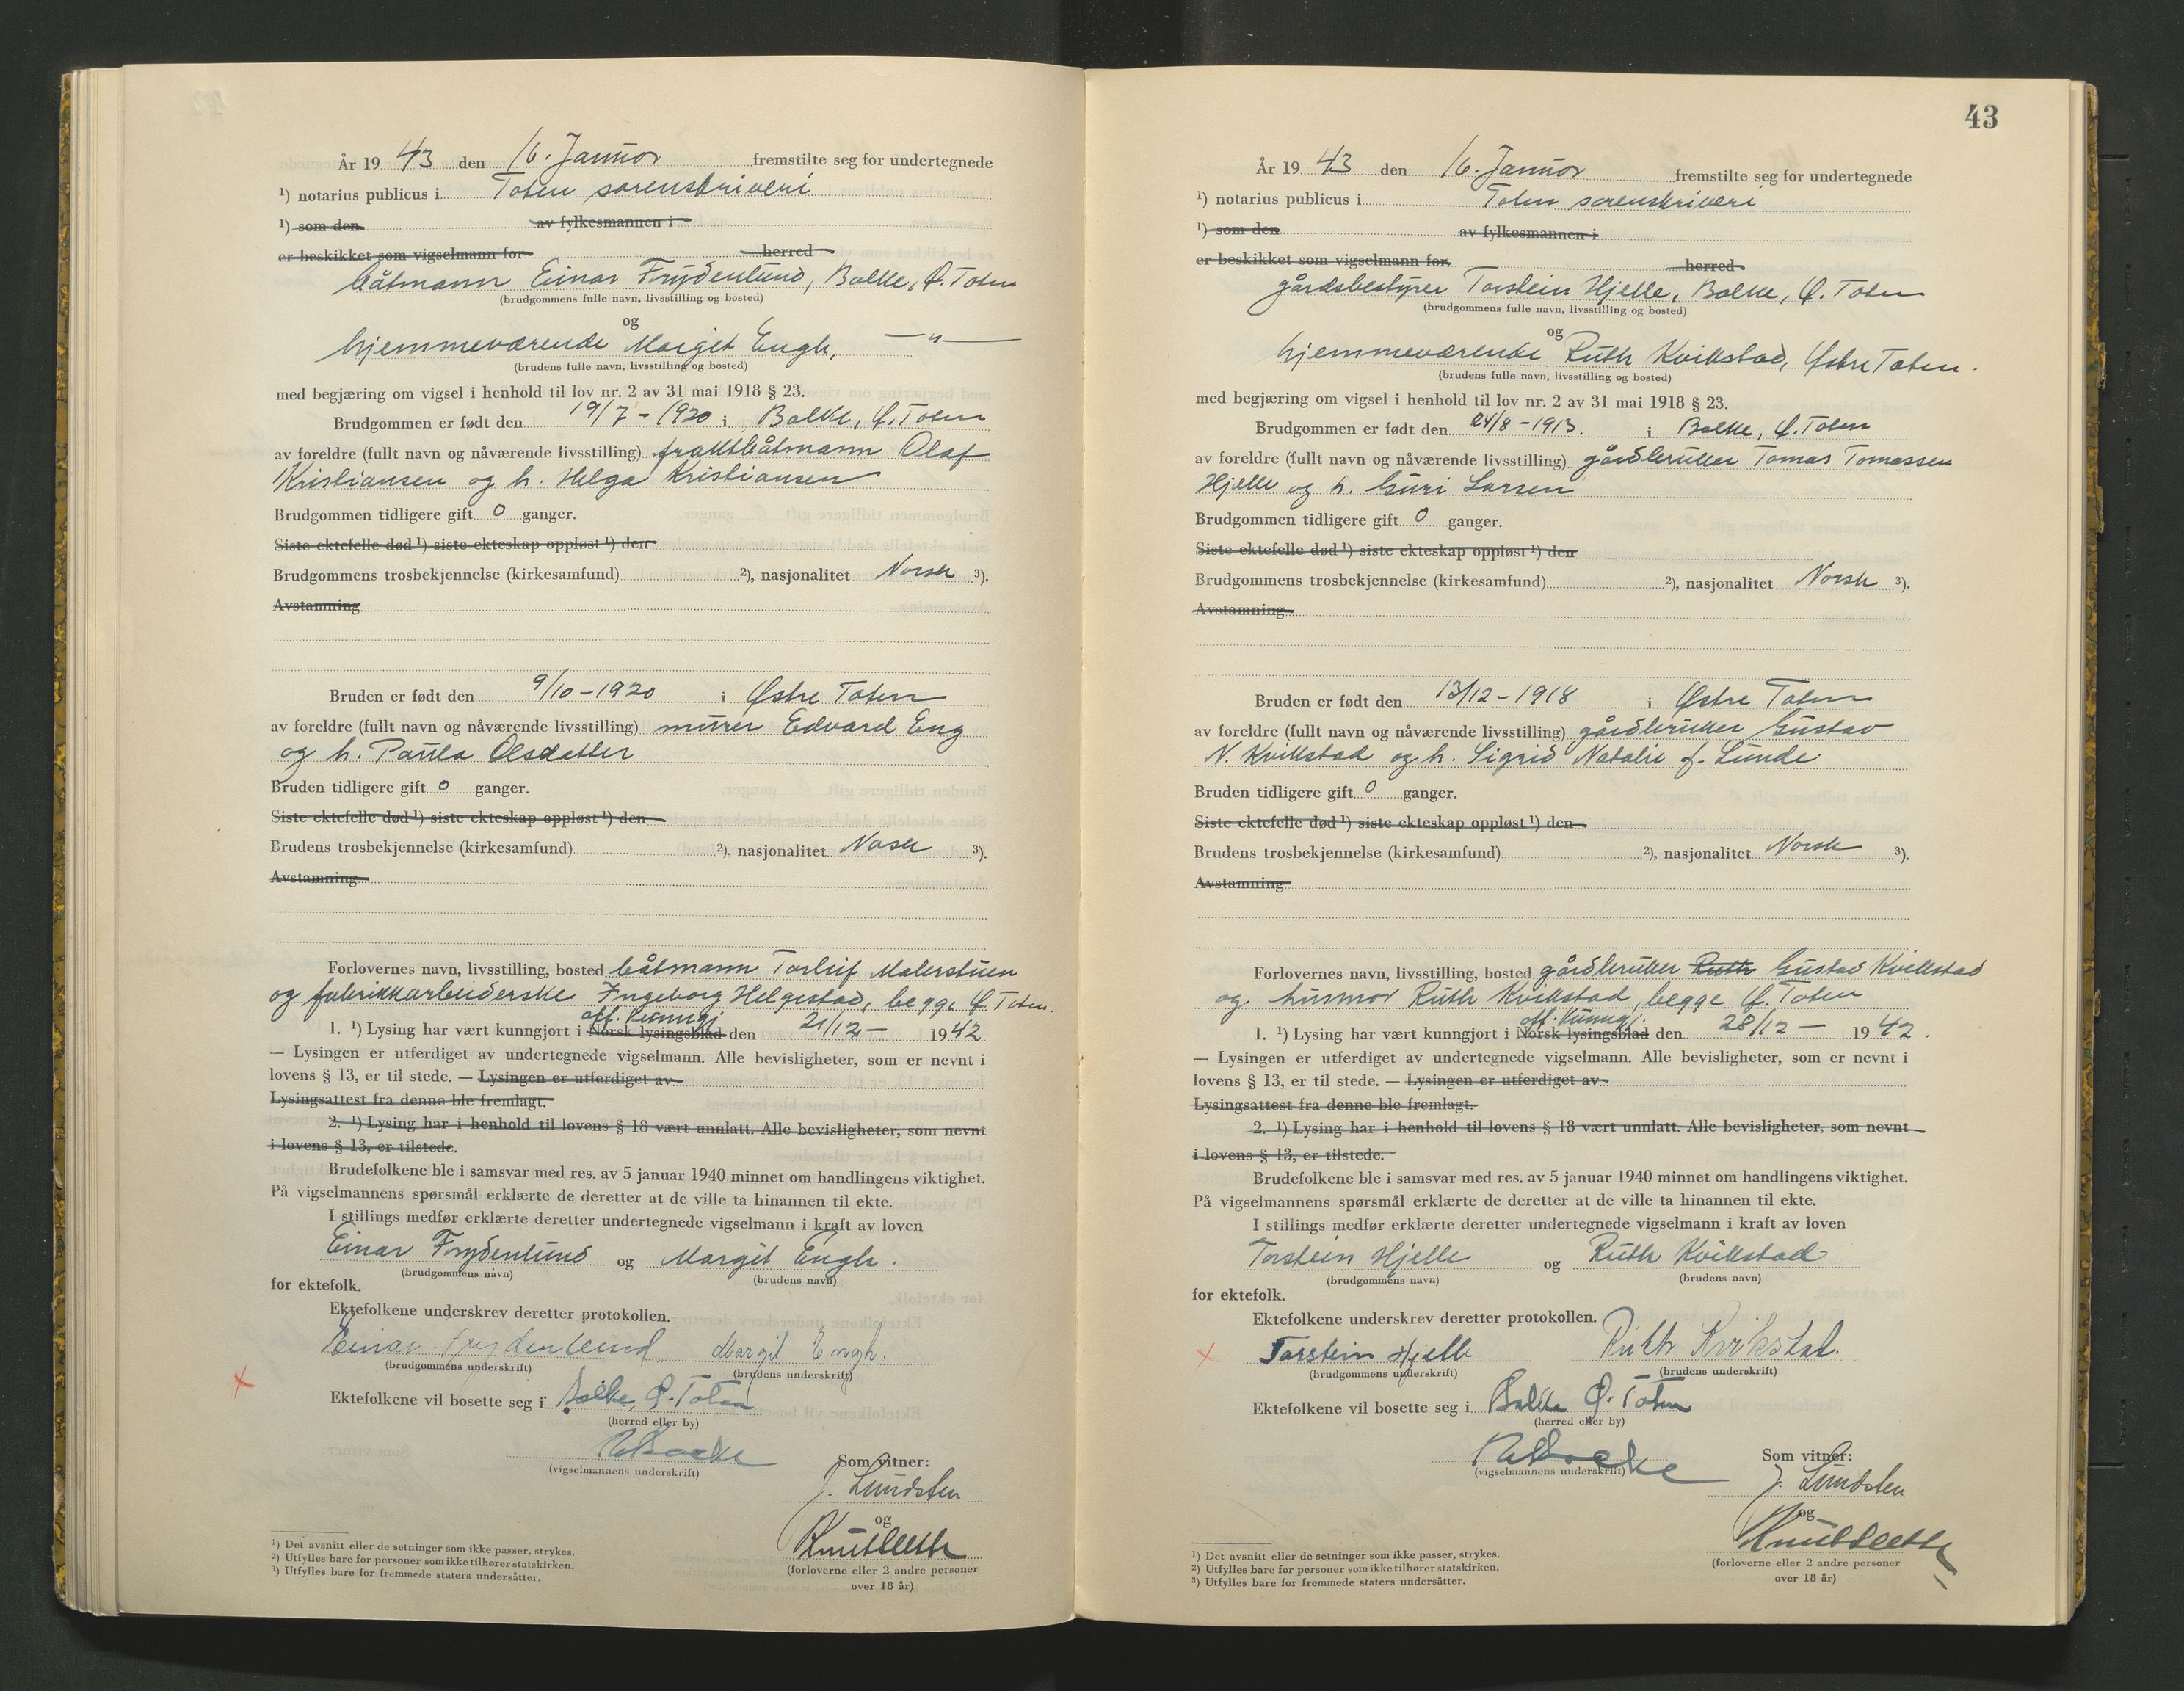 År 19 43 den 16. Januar fremstilte seg for undertegnede
¹) notarius publicus i Toten sorenskriveri
¹) som den av fylkesmannen i
er beskikket som vigselmann for herred
båtmann Einar Frydenlund, Balke, Ø. Toten
(brudgommens fulle navn, livsstilling og bosted)
og
hjemmeværende Margit Engh, — " —
(brudens fulle navn, livsstilling og bosted)
med begjæring om vigsel i henhold til lov nr. 2 av 31 mai 1918 § 23.
Brudgommen er født den 19/7 - 1920 i Balke, Ø. Toten
av foreldre (fullt navn og nåværende livsstilling) fraktbåtmann Olaf
Kristiansen og h. Helga Kristiansen
Brudgommen tidligere gift 0 ganger.
Siste ektefelle død ¹) siste ekteskap oppløst ¹) den
Brudgommens trosbekjennelse (kirkesamfund) ²), nasjonalitet Norsk ³).
Avstamning
Bruden er født den 9/10 - 1920 i Østre Toten
av foreldre (fullt navn og nåværende livsstilling) murer Edvard Eng
og h. Paula Olsdatter
Bruden tidligere gift 0 ganger.
Siste ektefelle død ¹) siste ekteskap oppløst ¹) den
Brudens trosbekjennelse (kirkesamfund) ²), nasjonalitet Norsk ³).
Avstamning
Forlovernes navn, livsstilling, bosted båtmann Torleif Malerstuen
og fabrikkarbeiderske Ingeborg Helgestad, begge Ø. Toten.
off. kunngj.
1. ¹) Lysing har vært kunngjort i Norsk lysingsblad den 21/12 - 1942
— Lysingen er utferdiget av undertegnede vigselmann. Alle bevisligheter, som er nevnt i
lovens § 13, er til stede. — Lysingen er utferdiget av
Lysingsattest fra denne ble fremlagt.
2. ¹) Lysing har i henhold til lovens § 18 vært unnlatt. Alle bevisligheter, som nevnt
i lovens § 13, er tilstede.
Brudefolkene ble i samsvar med res. av 5 januar 1940 minnet om handlingens viktighet.
På vigselmannens spørsmål erklærte de deretter at de ville ta hinannen til ekte.
I stillings medfør erklærte deretter undertegnede vigselmann i kraft av loven
Einar Frydenlund og Margit Engh.
(brudgommens navn) (brudens navn)
for ektefolk.
Ektefolkene underskrev deretter protokollen.
Einar Frydenlund Margit Engh.
(brudgommens underskrift) (brudens underskrift)
Ektefolkene vil bosette seg i Balke, Ø. Toten
(herred eller by)
(vigselmannens underskrift)
Som vitner:
J. Lundsten
og
(forloverne eller 2 andre personer
over 18 år)
¹) Det avsnitt eller de setninger som ikke passer, strykes.
²) Utfylles bare for personer som ikke tilhører statskirken.
³) Utfylles bare for fremmede staters undersåtter.
43
År 19 43 den 16. Januar fremstilte seg for undertegnede
¹) notarius publicus i Toten sorenskriveri
¹) som den av fylkesmannen i
er beskikket som vigselmann for herred
gårdsbestyrer Torstein Hjelle, Balke, Ø. Toten
(brudgommens fulle navn, livsstilling og bosted)
og
hjemmeværende Ruth Kvikstad, Østre Toten.
(brudens fulle navn, livsstilling og bosted)
med begjæring om vigsel i henhold til lov nr. 2 av 31 mai 1918 § 23.
Brudgommen er født den 24/8 - 1913. i Balke, Ø. Toten
av foreldre (fullt navn og nåværende livsstilling) gårdbruker Tomas Tomassen
Hjelle og h. Guri Larsen
Brudgommen tidligere gift 0 ganger.
Siste ektefelle død ¹) siste ekteskap oppløst ¹) den
Brudgommens trosbekjennelse (kirkesamfund) ²), nasjonalitet Norsk ³).
Avstamning
Bruden er født den 13/12 - 1918 i Østre Toten
av foreldre (fullt navn og nåværende livsstilling) gårdbruker Gustav
N. Kvikstad og h. Sigrid Natalie f. Lunde
Bruden tidligere gift 0 ganger.
Siste ektefelle død ¹) siste ekteskap oppløst ¹) den
Brudens trosbekjennelse (kirkesamfund) ²), nasjonalitet Norsk ³).
Avstamning
Forlovernes navn, livsstilling, bosted gårdbruker Ruth Gustav Kvikstad
og husmor Ruth Kvikstad, begge Ø. Toten
off. kunngj.
1. ¹) Lysing har vært kunngjort i Norsk lysingsblad den 28/12 — 1942.
— Lysingen er utferdiget av undertegnede vigselmann. Alle bevisligheter, som er nevnt i
lovens § 13, er til stede. — Lysingen er utferdiget av
Lysingsattest fra denne ble fremlagt.
2. ¹) Lysing har i henhold til lovens § 18 vært unnlatt. Alle bevisligheter, som nevnt
i lovens § 13, er tilstede.
Brudefolkene ble i samsvar med res. av 5 januar 1940 minnet om handlingens viktighet.
På vigselmannens spørsmål erklærte de deretter at de ville ta hinannen til ekte.
I stillings medfør erklærte deretter undertegnede vigselmann i kraft av loven
Torstein Hjelle og Ruth Kvikstad
(brudgommens navn) (brudens navn)
for ektefolk.
Ektefolkene underskrev deretter protokollen.
Torstein Hjelle Ruth Kvikstad.
(brudgommens underskrift) (brudens underskrift)
Ektefolkene vil bosette seg i Balke Ø. Toten
(herred eller by)
(vigselmannens underskrift)
Som vitner:
J. Lundsten
og
(forloverne eller 2 andre personer
over 18 år)
¹) Det avsnitt eller de setninger som ikke passer, strykes.
²) Utfylles bare for personer som ikke tilhører statskirken.
³) Utfylles bare for fremmede staters undersåtter.